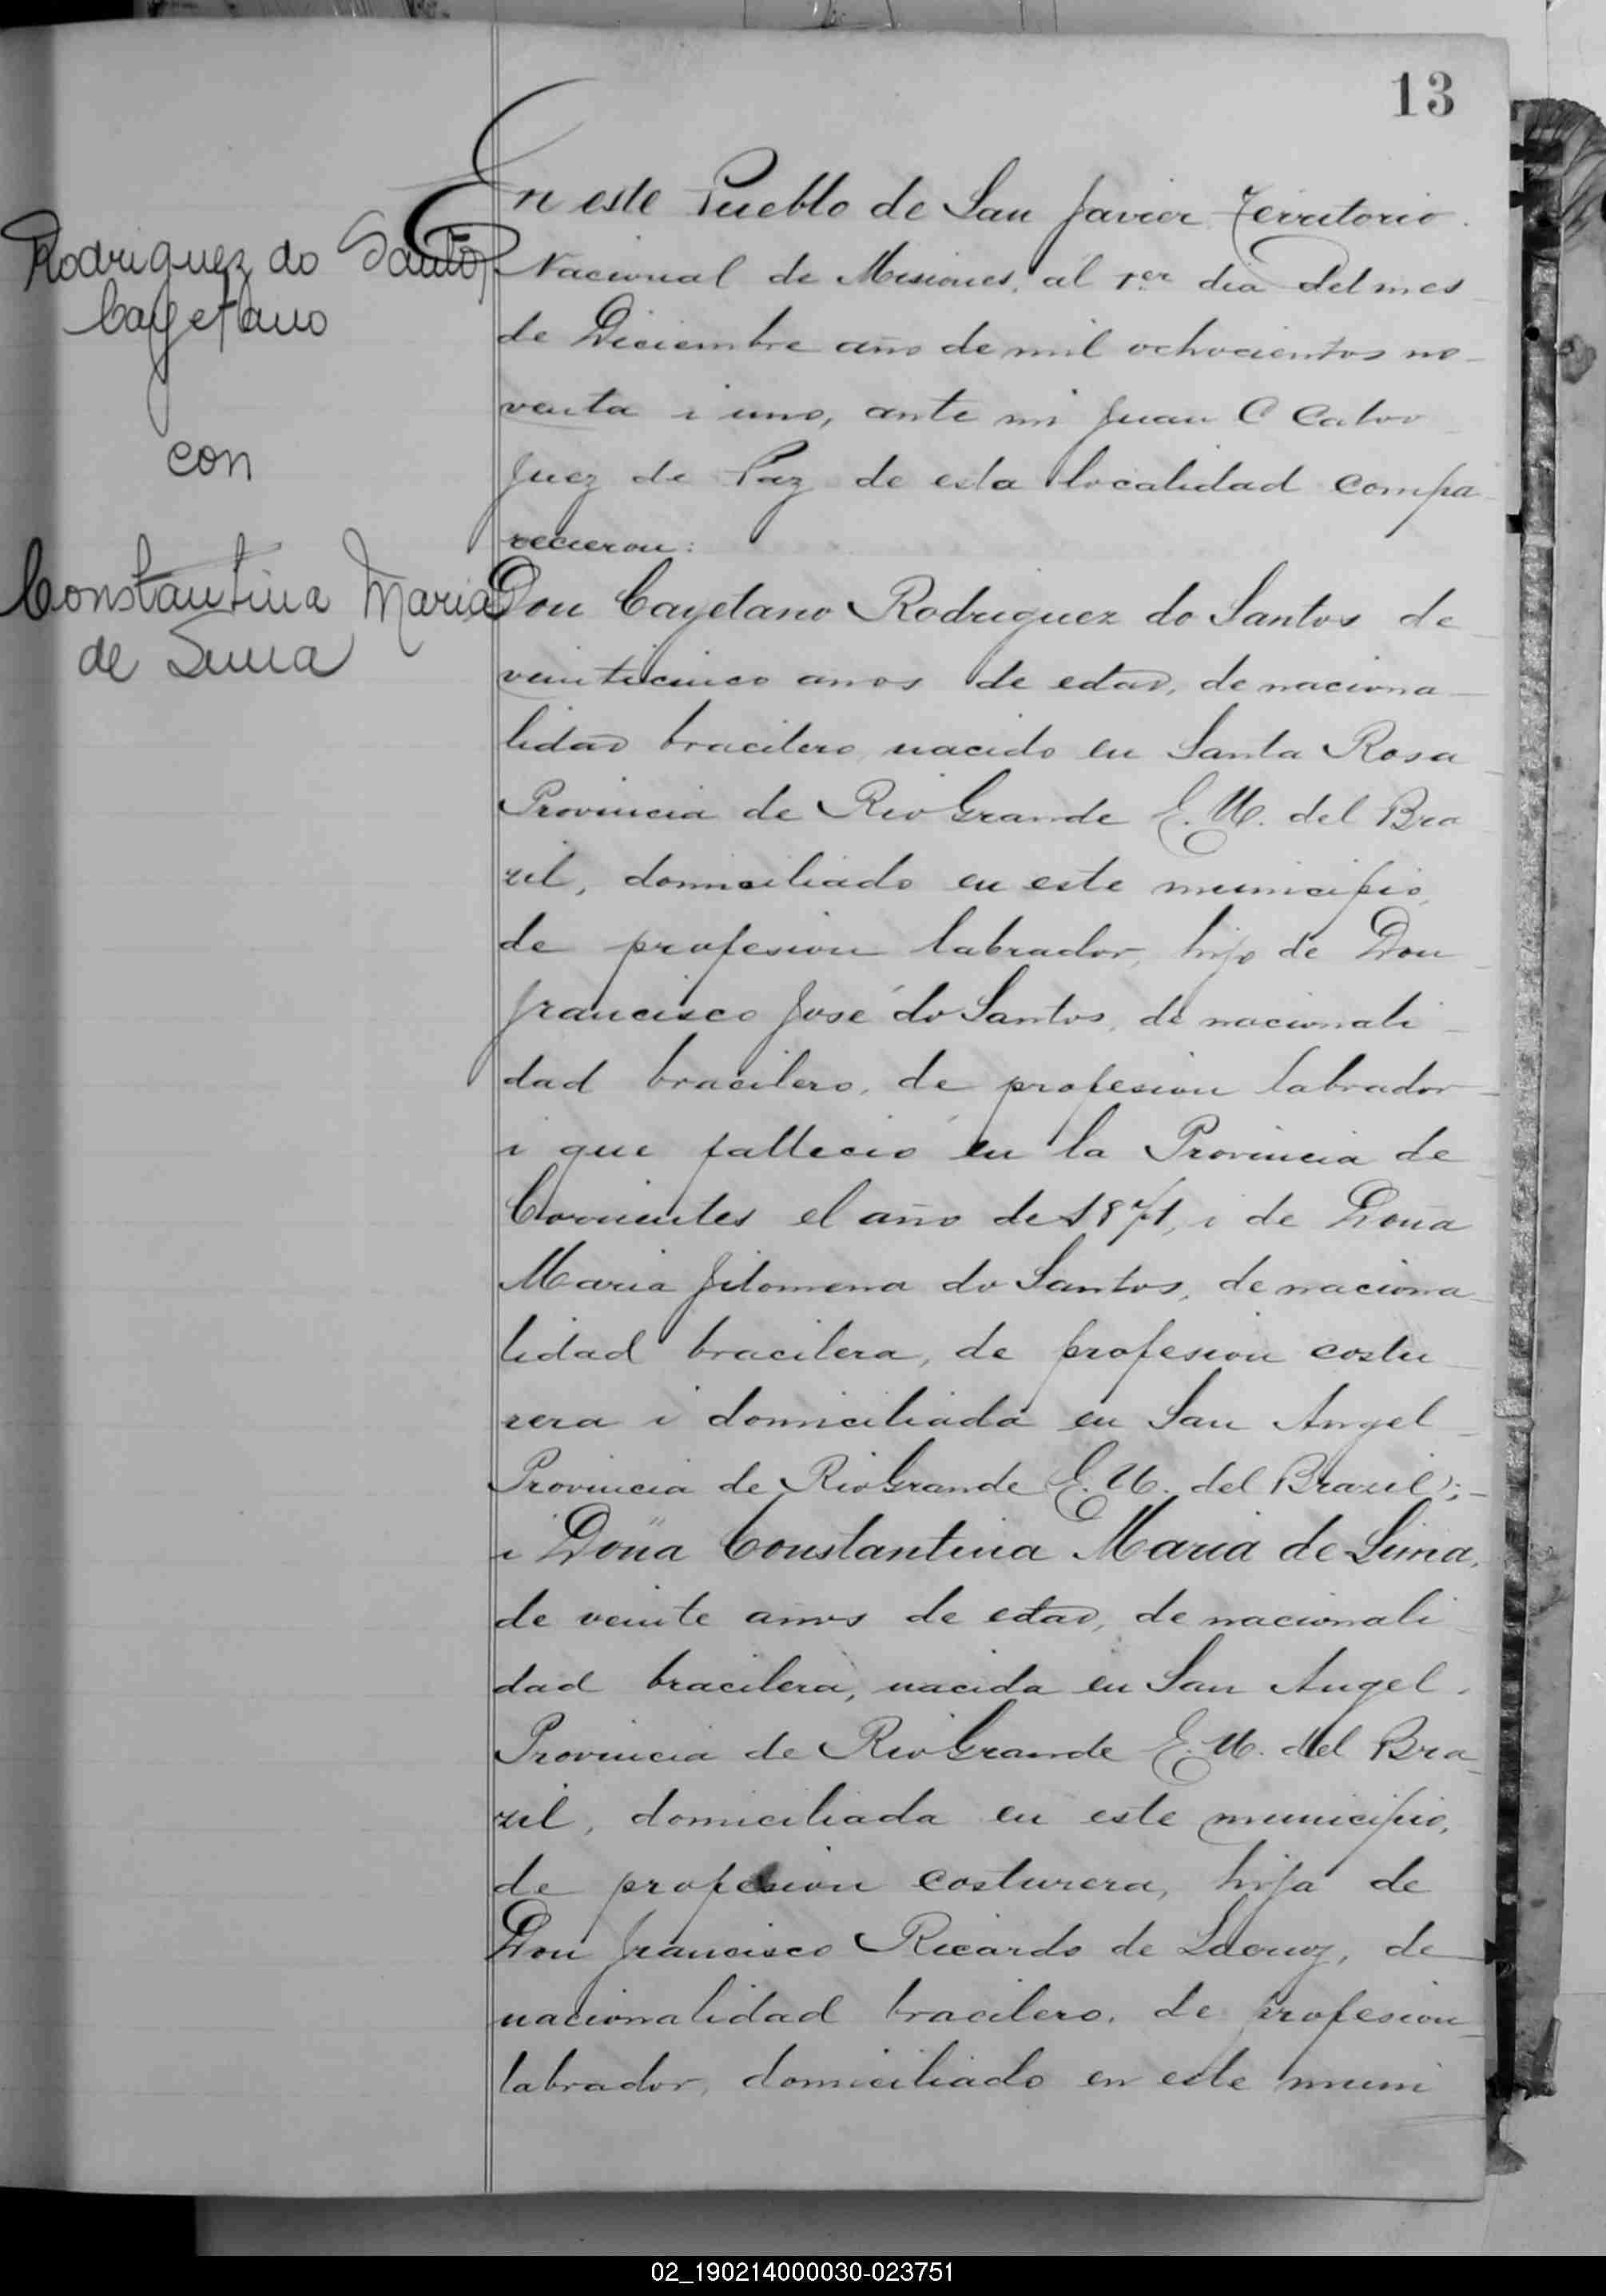 13
Rodriguez do Santos
Cayetano
con
Constantina Maria
de Lima
En este Pueblo de San Javier Territorio
Nacional de Misiones, al 1er dia del mes
de Diciembre año de mil ochocientos no-
venta i uno, ante mi Juan C Calvo
Juez de Paz de esta localidad compa
recieron:
Don Cayetano Rodriguez do Santos de
veinticinco anos de edad, de naciona
lidad bracilero, nacido en Santa Rosa
Provincia de Rio Grande E. U. del Bra
zil, domiciliado en este municipio,
de profesion labrador, hijo de Don
Francisco José do Santos, de nacionali
dad bracilero, de profesion labrador
i que falleció en la Provincia de
Corrientes el año de 1871, i de Doña
Maria Filomena do Santos, de naciona
lidad bracilera, de profesion costu
rera i domiciliada en San Angel
Provincia de Rio Grande E. U. del Brazil;
i Doña Constantina Maria de Lima,
de veinte anos de edad, de nacionali
dad bracilera, nacida en San Angel,
Provincia de Rio Grande E. U. del Bra
zil, domiciliada en este municipio,
de profesion costurera, hija de
Don Francisco Ricardo de , de
nacionalidad bracilero, de profesion
labrador, domiciliado en este muni
02_190214000030-023751